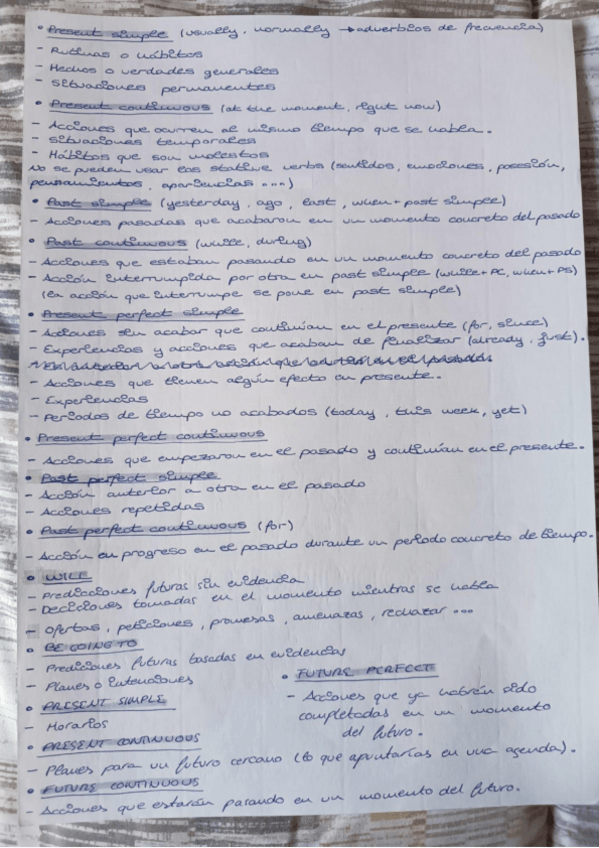 • Present simple (usually, normally → adverbios de frecuencia)
- Rutinas o hábitos
- Hechos o verdades generales
- Situaciones permanentes
• Present continuous (at the moment, right now)
- Acciones que ocurren al mismo tiempo que se habla.
- Situaciones temporales
- Hábitos que son molestos
No se pueden usar los stative verbs (sentidos, emociones, posesión,
pensamientos, apariencias ...)
• Past simple (yesterday, ago, last, when + past simple)
- Acciones pasadas que acabaron en un momento concreto del pasado
• Past continuous (while, during)
- Acciones que estaban pasando en un momento concreto del pasado
- Acción interrumpida por otra en past simple (while + PC, when + PS)
(la acción que interrumpe se pone en past simple)
• Present perfect simple
- Acciones sin acabar que continúan en el presente (for, since)
- Experiencias y acciones que acaban de finalizar (already, just).
- Acciones que tienen algún efecto en presente.
- Experiencias
- Periodos de tiempo no acabados (today, this week, yet)
• Present perfect continuous
- Acciones que empezaron en el pasado y continúan en el presente.
• Past perfect simple
- Acción anterior a otra en el pasado
- Acciones repetidas
• Past perfect continuous (for)
- Acción en progreso en el pasado durante un periodo concreto de tiempo.
• WILL
- Predicciones futuras sin evidencia
- Decisiones tomadas en el momento mientras se habla
- Ofertas, peticiones, promesas, amenazas, rechazar ...
• BE GOING TO
- Predicciones futuras basadas en evidencias
- Planes o intenciones
• PRESENT SIMPLE
- Horarios
• PRESENT CONTINUOUS
- Planes para un futuro cercano (lo que apuntarías en una agenda).
• FUTURE CONTINUOUS
- Acciones que estarán pasando en un momento del futuro.
• FUTURE PERFECT
- Acciones que ya habrán sido
completadas en un momento
del futuro.